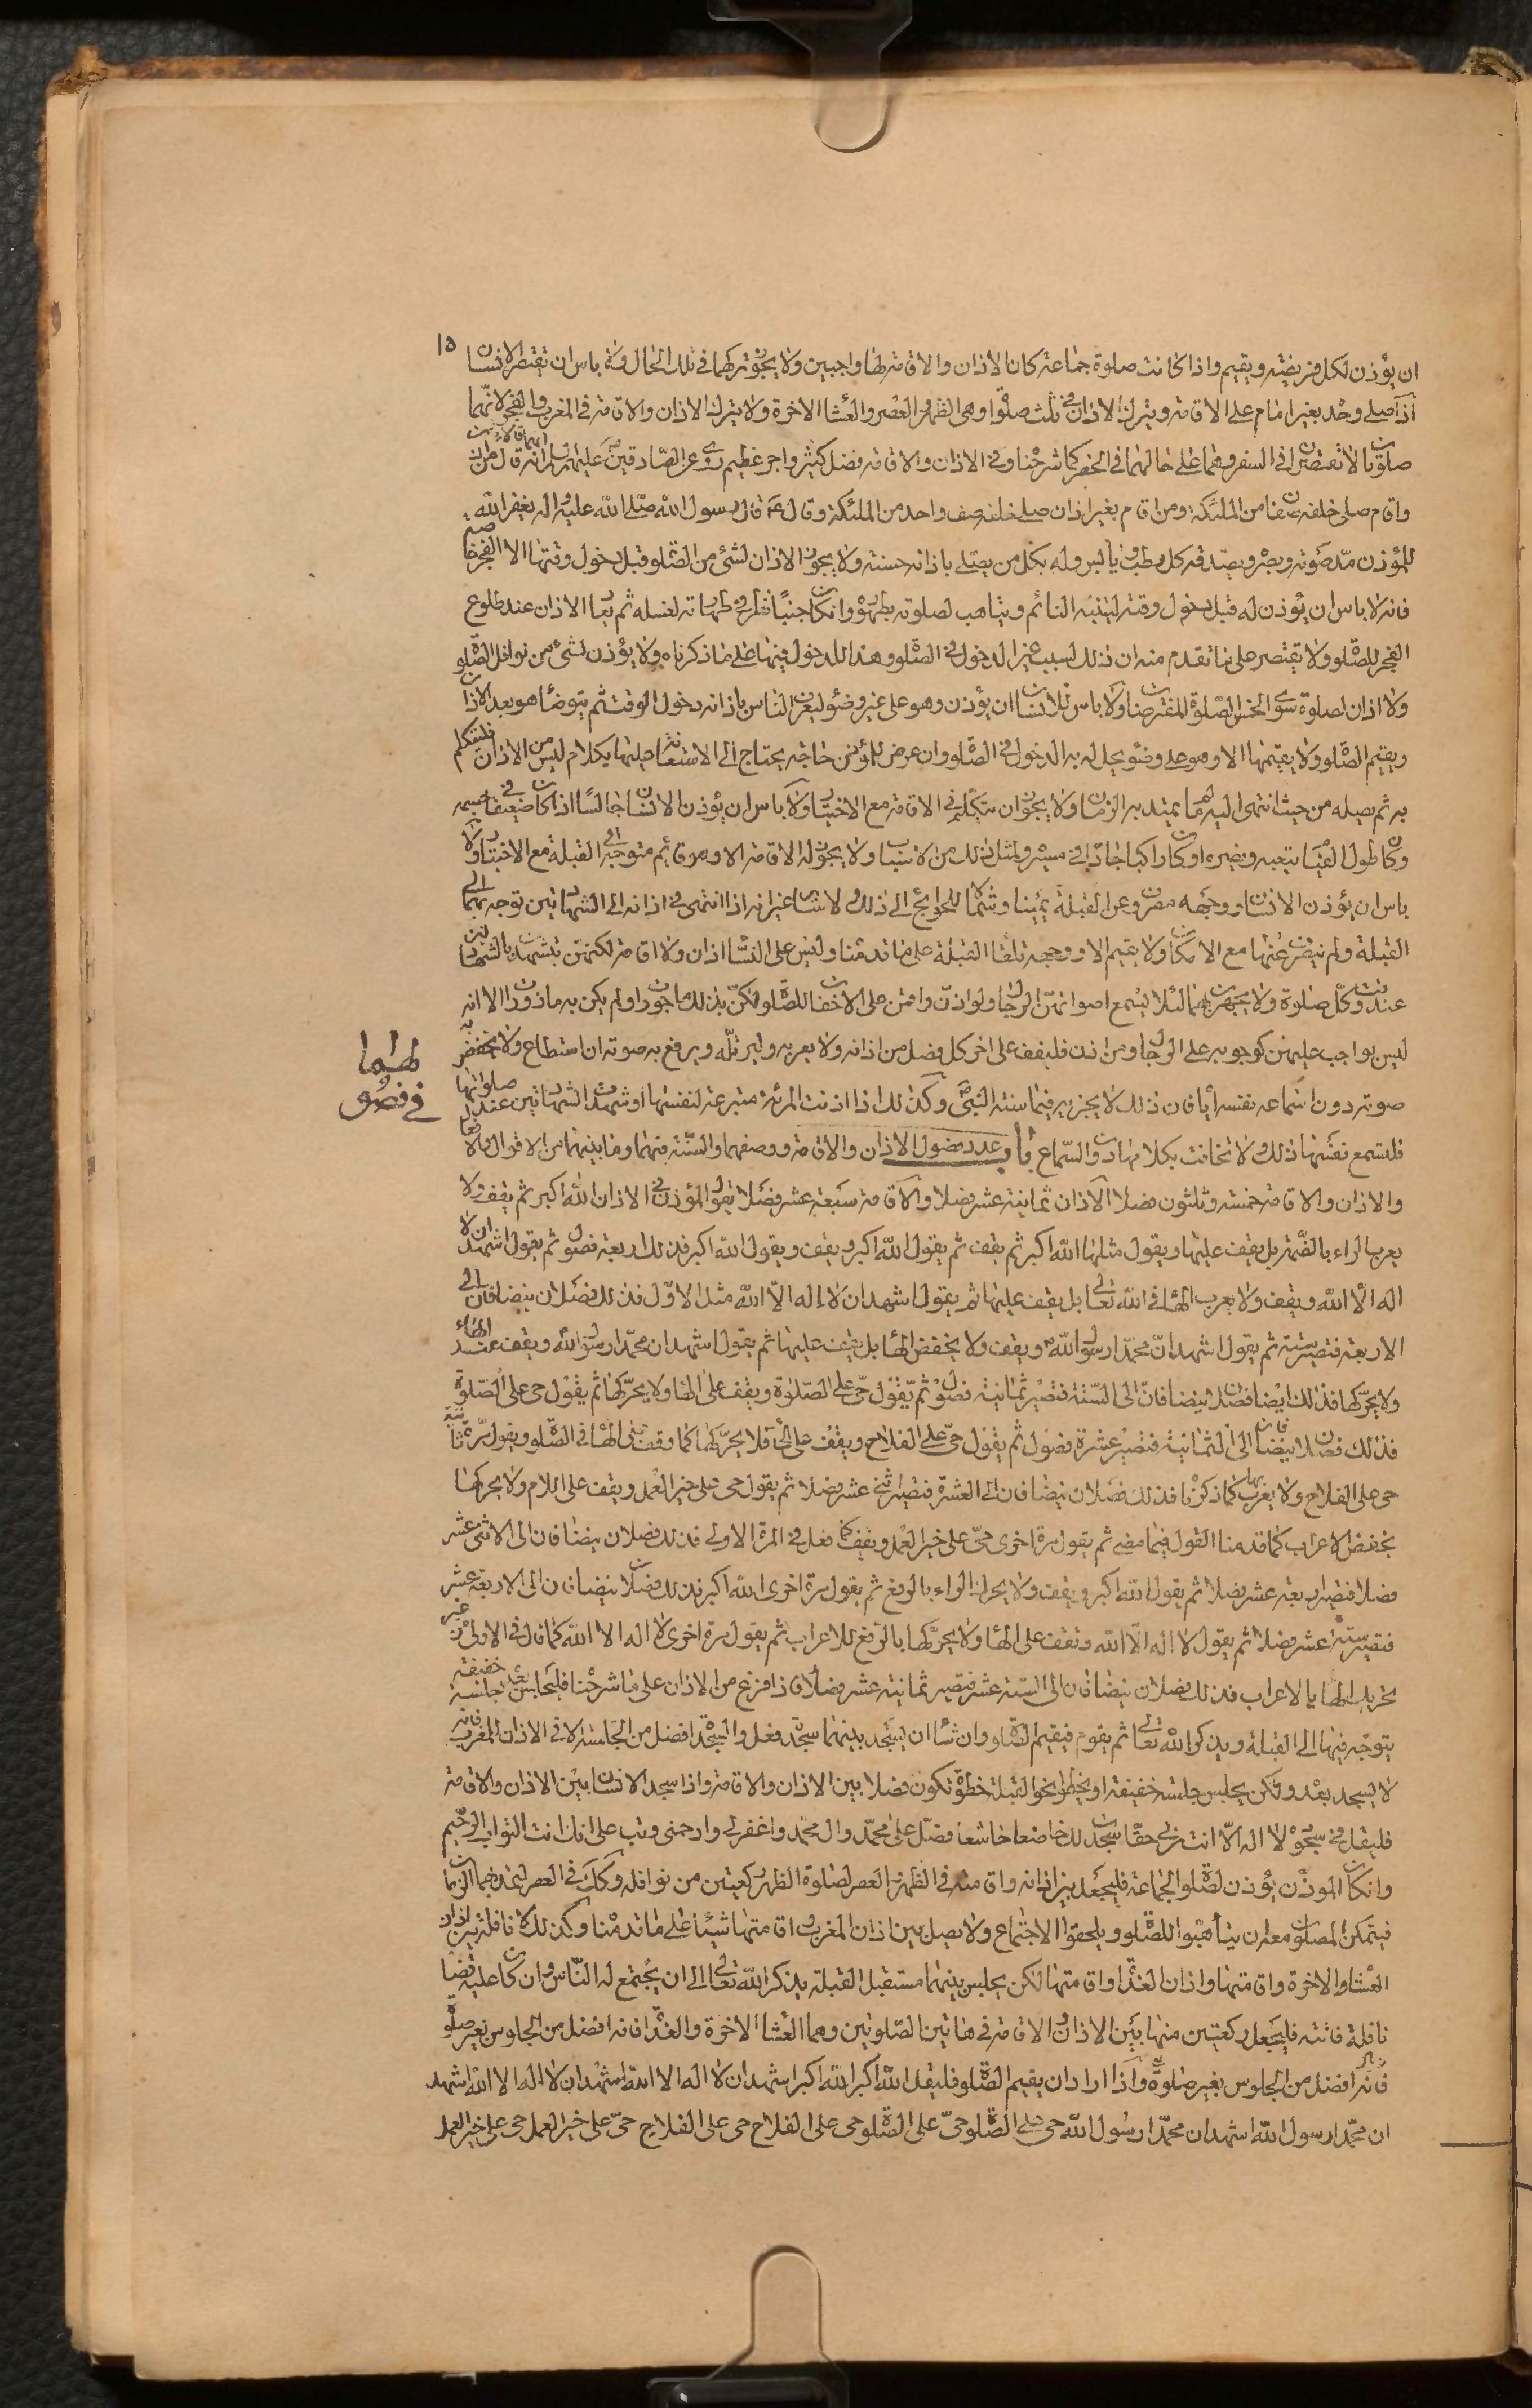 ١٥
ان يؤذن لكل فريضة ويقيم واذا كانت صلوة جماعة كان الاذان والاقامة لها واجبين ولا يجوز تركهما في تلك الحال ولا باس ان يقتصر الانسان
اذا صلى وحده بغير امام على الاقامة ويترك الاذان في ثلث صلوات وهي الظهر والعصر والعشاء الاخرة ولا يترك الاذان والاقامة في المغرب والفجر لانهما
صلوتان لا تقصران في السفر وهما على حالهما في الحضر كما شرحناه وفي الاذان والاقامة فضل كثير واجر عظيم روى عن الصادقين عليهم السلم انهم قالوا من اذن
واقام صلى خلفه صفان من الملئكة ومن اقام بغير اذان صلى خلفه صف واحد من الملئكة وقال ع قال رسول الله صلى الله عليه واله يغفر الله
للمؤذن مد صوته وبصره ويصدقه كل رطب ويابس وله بكل من يصلى باذانه حسنة ولا يجوز الاذان لشئ من الصلوة قبل دخول وقتها الا الفجر خاصة
فانه لا باس ان يؤذن له قبل دخول وقته لينتبه النائم ويتاهب لصلوته بطهوره وان كان جنبا نظر في طهارته لغسله ثم يعاد الاذان عند طلوع
الفجر للصلوة ولا يقتصر على ما تقدم منه اذ ذلك لسبب غير الدخول في الصلوة وهذا للدخول فيها على ما ذكرناه ولا يؤذن لشئ من نوافل الصلوة
ولا اذان لصلوة سوى الخمس الصلوة المفترضات ولا باس للانسان ان يؤذن وهو على غير وضوء ليعرف الناس باذانه دخول الوقت ثم يتوضا هو بعد الاذان
ويقيم الصلوة ولا يقيمها الا وهو على وضوء يحل له به الدخول في الصلوة وان عرض للمؤذن حاجة يحتاج الى الاستعانة عليها بكلام ليس من الاذان فليتكلم
به ثم يصله من حيث انتهى اليه ما لم يمتد به الزمان ولا يجوز ان يتكلم في الاقامة مع الاختيار ولا باس ان يؤذن الانسان جالسا اذا كان ضعيفا في جسمه
وكان طول القيام يتعبه ويضره او كان راكبا جادا في مسيره ولمثل ذلك من الاسباب ولا يجوز له الاقامة الا وهو قائم متوجه الى القبلة مع الاختيار ولا
باس ان يؤذن الانسان ووجهه مصروف عن القبلة يمينا وشمالا للحوائج الى ذلك والاسباب غير انه اذا انتهى في اذانه الى الشهادتين توجه بهما الى
القبلة ولم ينصرف عنها مع الامكان ولا يقيم الا ووجهه تلقاء القبلة على ما قدمناه وليس على النساء اذان ولا اقامة لكنهن يتشهدن بالشهادتين
عند وقت كل صلوة ولا يجهرن بهما لئلا يسمع اصواتهن الرجال ولو اذن واقمن على الاخفات للصلوة لكن بذلك ماجورات ولم يكن به مازورات الا انه
ليس بواجب عليهن كوجوبه على الرجال ومن اذن فليقف على اخر كل فصل من اذانه ولا يعرب به وليرتله ويرفع به صوته ان استطاع ولا يخفض به
صوته دون اسماعه نفسه اياه فان ذلك لا يجزيه فيما سنه النبي ص وكذلك اذا اذنت المرئة متبرعة لنفسها او شهدت الشهادتين عند صلوتها
فلتسمع نفسها ذلك ولا تخافت بكلامها دون السماع باب عدد فصول الاذان والاقامة ووصفهما والسنة فيهما وما بينهما من الاقوال والافعال
لهما
في فصو
والاذان والاقامة خمسة وثلثون فصلا الاذان ثمانية عشر فصلا والاقامة سبعة عشر فصلا يقول المؤذن في الاذان الله اكبر ثم يقف ولا
يعرب الراء بالضمة بل يقف عليها ويقول مثلها الله اكبر ثم يقف ثم يقول الله اكبر ويقف ويقول الله اكبر فذلك اربعة فصول ثم يقول اشهد ان لا
اله الا الله ويقف ولا يعرب الهاء في الله تعالى بل يقف عليها ثم يقول اشهد ان لا اله الا الله مثل الاول فذلك فصلان ينضافان الى
الاربعة فتصير ستة ثم يقول اشهد ان محمدا رسول الله ويقف ولا يخفض الهاء بل يقف عليها ثم يقول اشهد ان محمدا رسول الله ويقف عند الهاء
ولا يحركها فذلك ايضا فصلان ينضافان الى الستة فتصير ثمانية فصول ثم يقول حي على الصلوة ويقف على الهاء ولا يحركها ثم يقول حي على الصلوة
فذلك فصلان ينضافان الى الثمانية فتصير عشرة فصول ثم يقول حي على الفلاح ويقف على الحاء فلا يحركها كما وقف على الهاء في الصلوة ويقول مرة ثانية
حي على الفلاح ولا يعرب بها كما ذكرنا فذلك فصلان ينضافان الى العشرة فتصير اثني عشر فصلا ثم يقول حي على خير العمل ويقف على اللام ولا يحركها
بخفض الاعراب كما قدمنا القول فيما مضى ثم يقول مرة اخرى حي على خير العمل ويقف كما فعل في المرة الاولى فذلك فصلان ينضافان الى الاثنى عشر
فصلا فتصير اربعة عشر فصلا ثم يقول الله اكبر ويقف ولا يحرك الراء بالرفع ثم يقول مرة اخرى الله اكبر فذلك فصلان ينضافان الى الاربعة عشر
فتصير ستة عشر فصلا ثم يقول لا اله الا الله ويقف على الهاء ولا يحركها بالرفع للاعراب ثم يقول مرة اخرى لا اله الا الله كما قال في الاولى من غير
تحريك الهاء بالاعراب فذلك فصلان ينضافان الى الستة عشر فتصير ثمانية عشر فصلا فاذا فرغ من الاذان على ما شرحناه فليجلس بعده جلسة خفيفة
يتوجه فيها الى القبلة ويذكر الله تعالى ثم يقوم فيقيم الصلوة وان شاء ان يسجد بينهما سجدة فعل والسجدة افضل من الجلسة الا في الاذان المغرب فانه
لا يسجد بعده ولكن يجلس جلسة خفيفة او يخطو نحو القبلة خطوة تكون فصلا بين الاذان والاقامة واذا سجد الانسان بين الاذان والاقامة
فليقل في سجوده لا اله الا انت ربي حقا سجدت لك خاضعا خاشعا فصل على محمد وال محمد واغفر لي وارحمني وتب على انك انت التواب الرحيم
وان كان الموذن يؤذن لصلوة الجماعة فليجعل بين اذانه واقامته في الظهر والعصر لصلوة الظهر ركعتين من نوافله وكك في العصر ليمتد بهما الزمان
فيتمكن المصلون معه ان يتأهبوا للصلوة ويلحقوا الاجتماع ولا يصل بين اذان المغرب واقامتها شيئا على ما قدمناه وكذلك لا نافلة بين اذان
العشاء الاخرة واقامتها واذان الغداة واقامتها لكن يجلس بينهما مستقبل القبلة يذكر الله تعالى الى ان يجتمع له الناس وان كان عليه قضاء
نافلة فائتة فليجعل ركعتين منها بين الاذان والاقامة في هاتين الصلوتين وهما العشاء الاخرة والغداة فانه افضل من الجلوس بغير صلوة
فانه افضل من الجلوس بغير صلوة واذا اراد ان يقيم الصلوة فليقل الله اكبر الله اكبر اشهد ان لا اله الا الله اشهد ان لا اله الا الله اشهد
ان محمدا رسول الله اشهد ان محمدا رسول الله حي على الصلوة حي على الصلوة حي على الفلاح حي على الفلاح حي على خير العمل حي على خير العمل